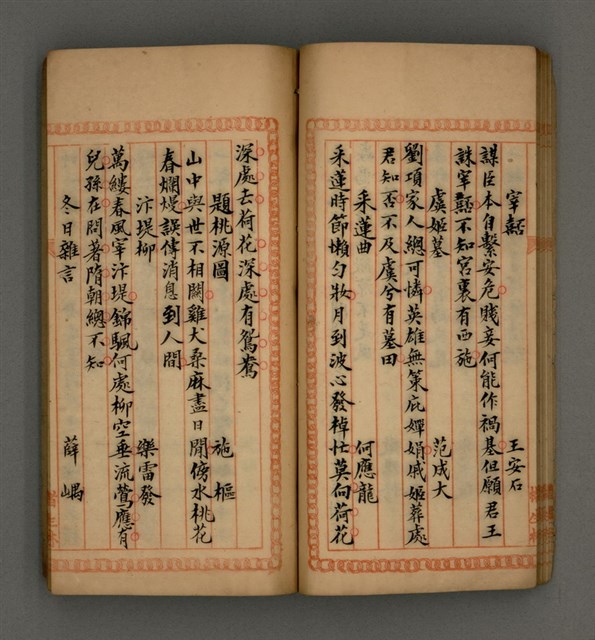 宰嚭 王安石
謀臣本自繫安危賤妾何能作禍基但願君王
誅宰嚭不知宮裏有西施
虞姬墓 范成大
劉項家人總可憐英雄無策庇嬋娟戚姬葬處
君知否不及虞兮有墓田
采蓮曲 何應龍
采蓮時節懶勻妝月到波心發棹忙莫向荷花
深處去荷花深處有鴛鴦
題桃源圖 施樞
山中與世不相關雞犬桑麻盡日閒傍水桃花
春爛熳誤傳消息到人間
汴堤柳 樂雷發
萬縷春風宰汴堤錦颿何處柳空垂流鶯應有
兒孫在問著隋朝總不知
冬日雜言 薛嵎